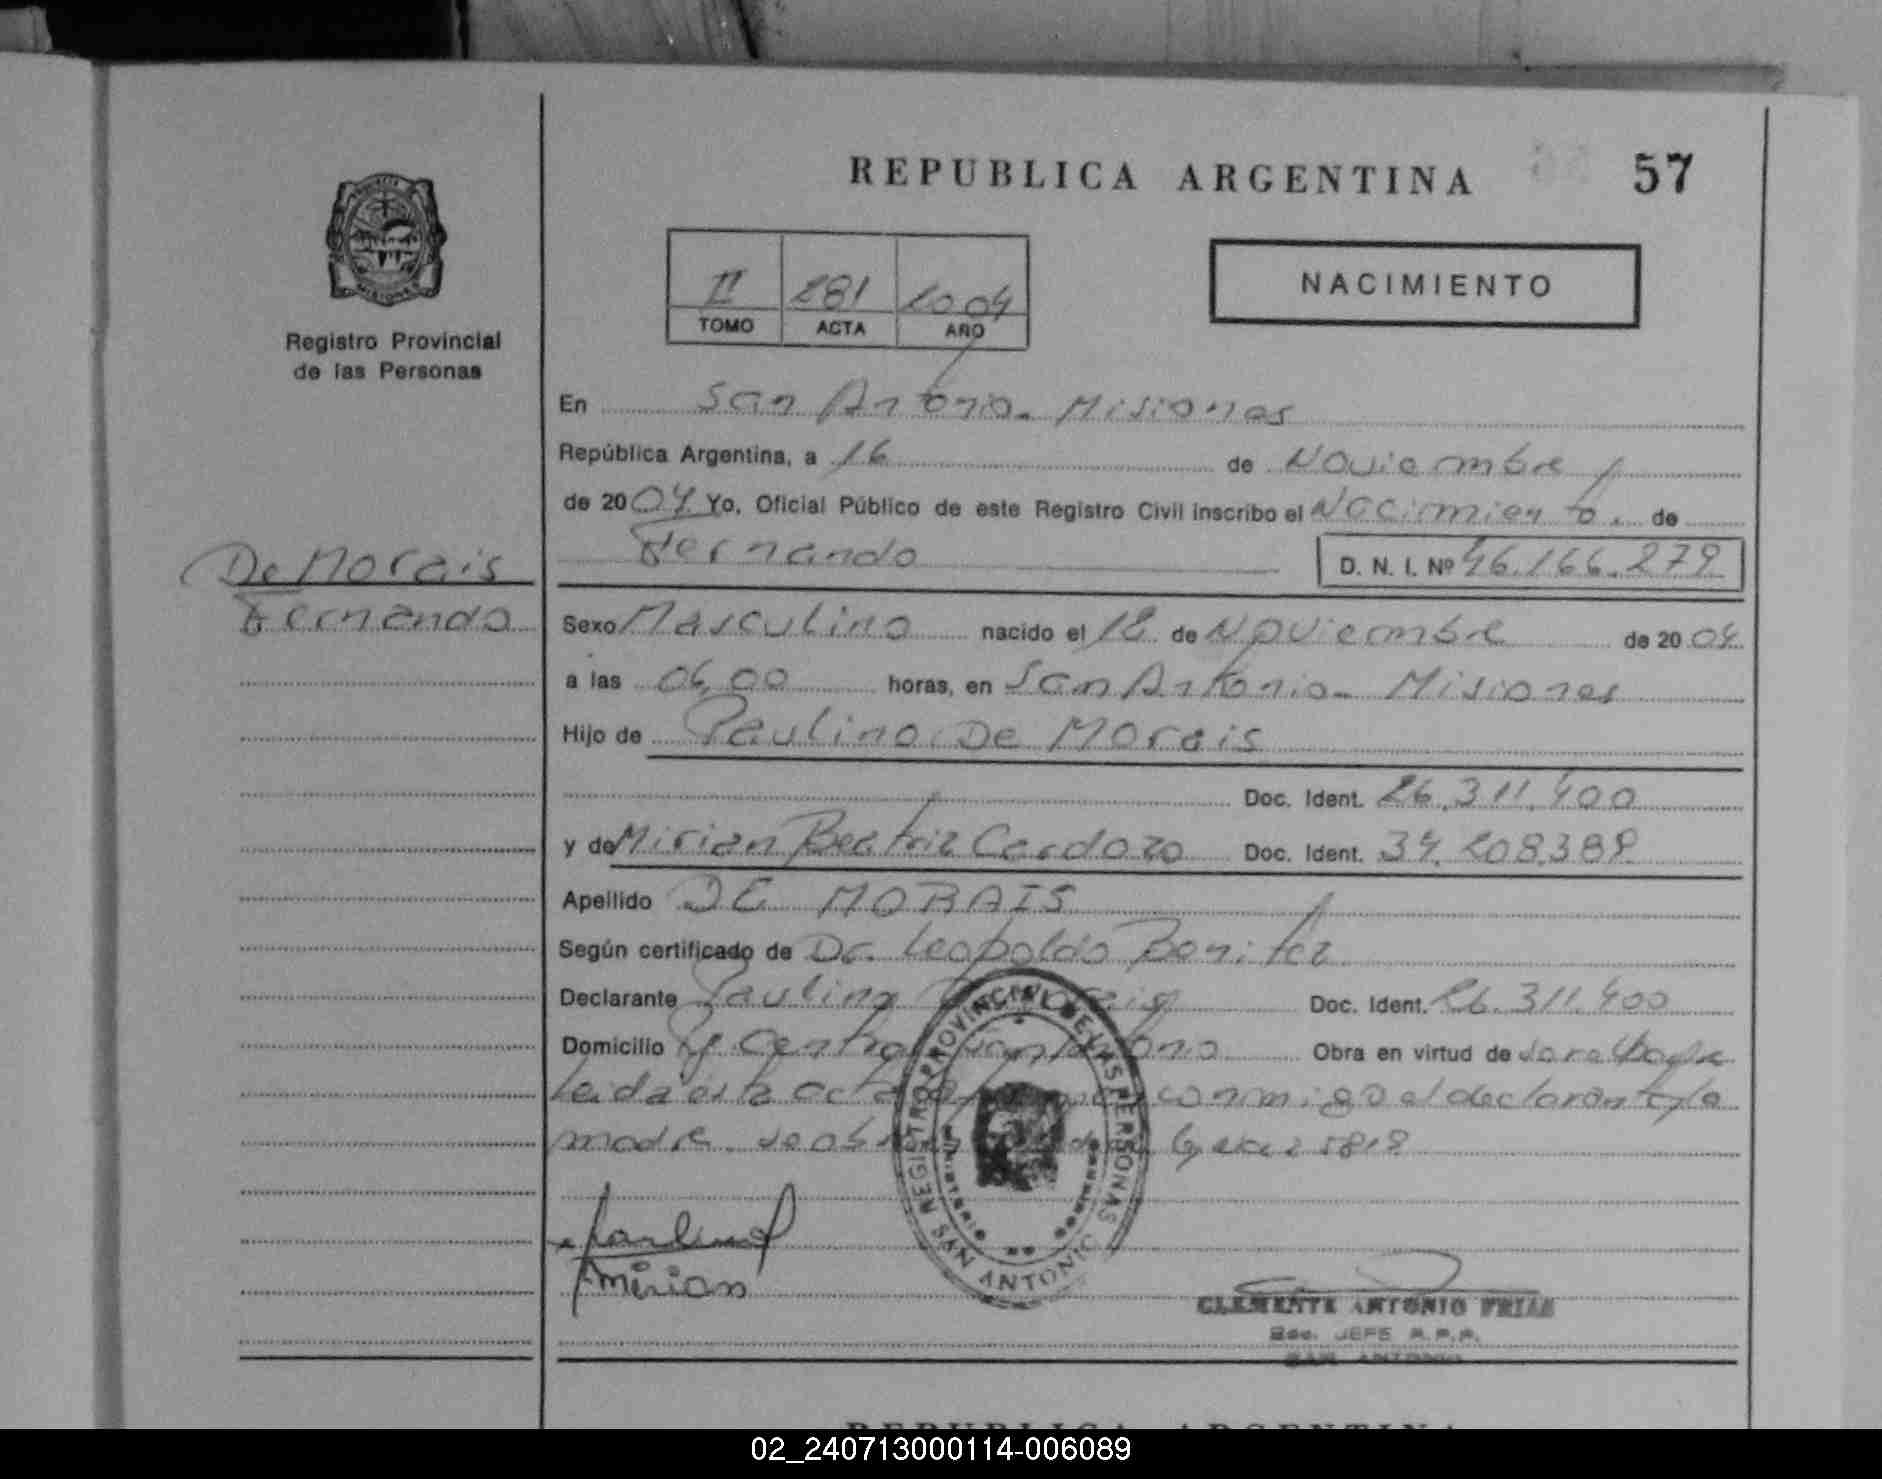 REPUBLICA ARGENTINA
57
Registro Provincial
de las Personas
II 281 2004
TOMO ACTA AÑO
NACIMIENTO
En San Antonio - Misiones
República Argentina, a 16 de Noviembre
de 2004 Yo, Oficial Público de este Registro Civil inscribo el Nacimiento de
Fernando
D. N. I. Nº 46.166.279
De Morais
Fernando
Sexo Masculino nacido el 12 de Noviembre de 2004
a las 06,00 horas, en San Antonio - Misiones
Hijo de Paulino De Morais
Doc. Ident. 26.311.400
y de Mirian Beatriz Cardozo Doc. Ident. 34.208.389
Apellido DE MORAIS
Según certificado de Dr. Leopoldo Benitez
Declarante Paulino De Morais Doc. Ident. 26.311.400
Domicilio Centro San Antonio Obra en virtud de
Leida esta acta conmigo el declarante y la
madre
REGISTRO PROVINCIAL DE LAS PERSONAS
SAN ANTONIO
Paulino
Mirian
CLEMENTE ANTONIO FRIAS
JEFE R.P.P.
SAN ANTONIO
REPUBLICA ARGENTINA
02_240713000114-006089